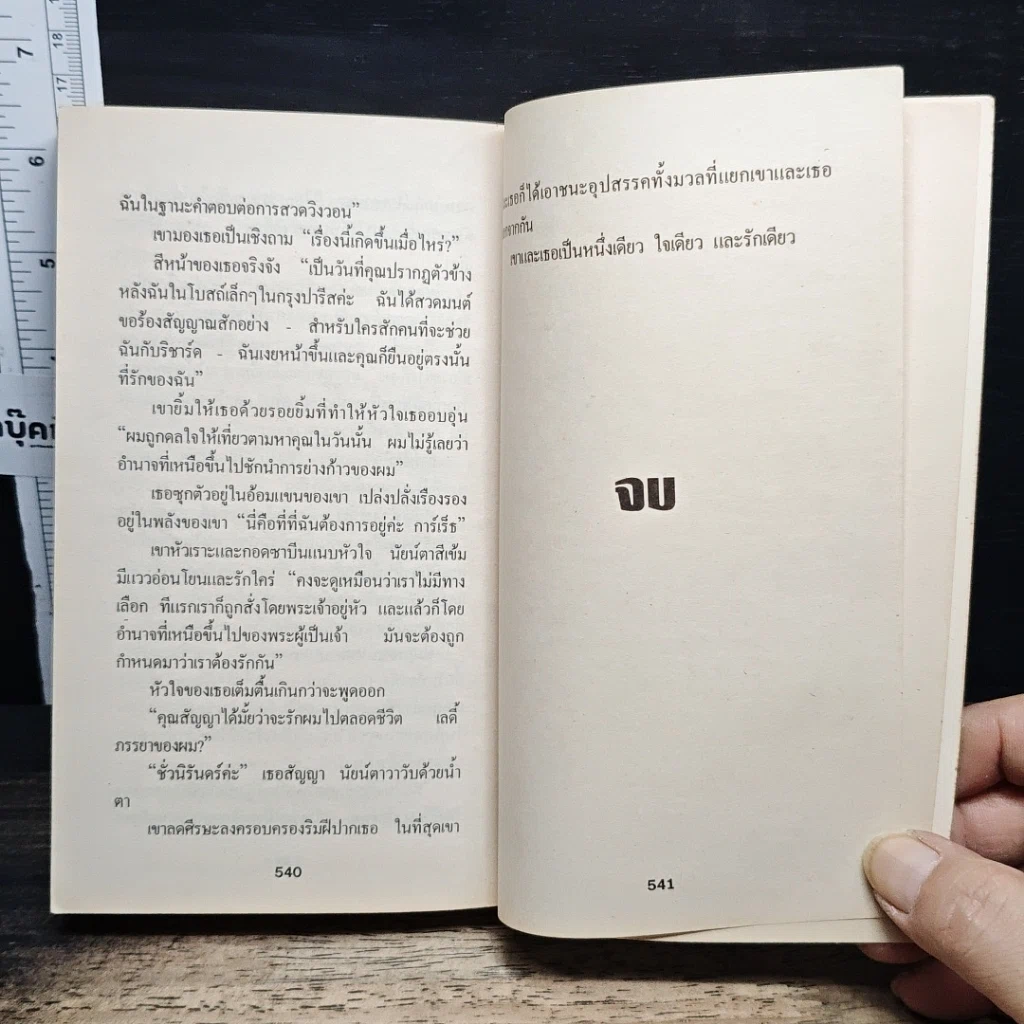 ฉันในฐานะคำตอบต่อการสวดวิงวอน”
เขามองเธอเป็นเชิงถาม “เรื่องนี้เกิดขึ้นเมื่อไหร่?”
สีหน้าของเธอจริงจัง “เป็นวันที่คุณปรากฏตัวข้าง
หลังฉันในโบสถ์เล็กๆในกรุงปารีสค่ะ ฉันได้สวดมนต์
ขอร้องสัญญาณสักอย่าง - สำหรับใครสักคนที่จะช่วย
ฉันกับริชาร์ด - ฉันเงยหน้าขึ้นและคุณก็ยืนอยู่ตรงนั้น
ที่รักของฉัน”
เขายิ้มให้เธอด้วยรอยยิ้มที่ทำให้หัวใจเธออบอุ่น
“ผมถูกดลใจให้เที่ยวตามหาคุณในวันนั้น ผมไม่รู้เลยว่า
อำนาจที่เหนือขึ้นไปชักนำการย่างก้าวของผม”
เธอซุกตัวอยู่ในอ้อมแขนของเขา เปล่งปลั่งเรืองรอง
อยู่ในพลังของเขา “นี่คือที่ที่ฉันต้องการอยู่ค่ะ การ์เร็ธ”
เขาหัวเราะและกอดซาบีนแนบหัวใจ นัยน์ตาสีเข้ม
มีแววอ่อนโยนและรักใคร่ “คงจะดูเหมือนว่าเราไม่มีทาง
เลือก ทีแรกเราก็ถูกสั่งโดยพระเจ้าอยู่หัว และแล้วก็โดย
อำนาจที่เหนือขึ้นไปของพระผู้เป็นเจ้า มันจะต้องถูก
กำหนดมาว่าเราต้องรักกัน”
หัวใจของเธอเต็มตื้นเกินกว่าจะพูดออก
“คุณสัญญาได้มั้ยว่าจะรักผมไปตลอดชีวิต เลดี้
ภรรยาของผม?”
“ชั่วนิรันดร์ค่ะ” เธอสัญญา นัยน์ตาวาวับด้วยน้ำ
ตา
เขาลดศีรษะลงครอบครองริมฝีปากเธอ ในที่สุดเขา
540
เธอก็ได้เอาชนะอุปสรรคทั้งมวลที่แยกเขาและเธอ
จากกัน
เขาและเธอเป็นหนึ่งเดียว ใจเดียว และรักเดียว
จบ
541
7
6
5
18
17